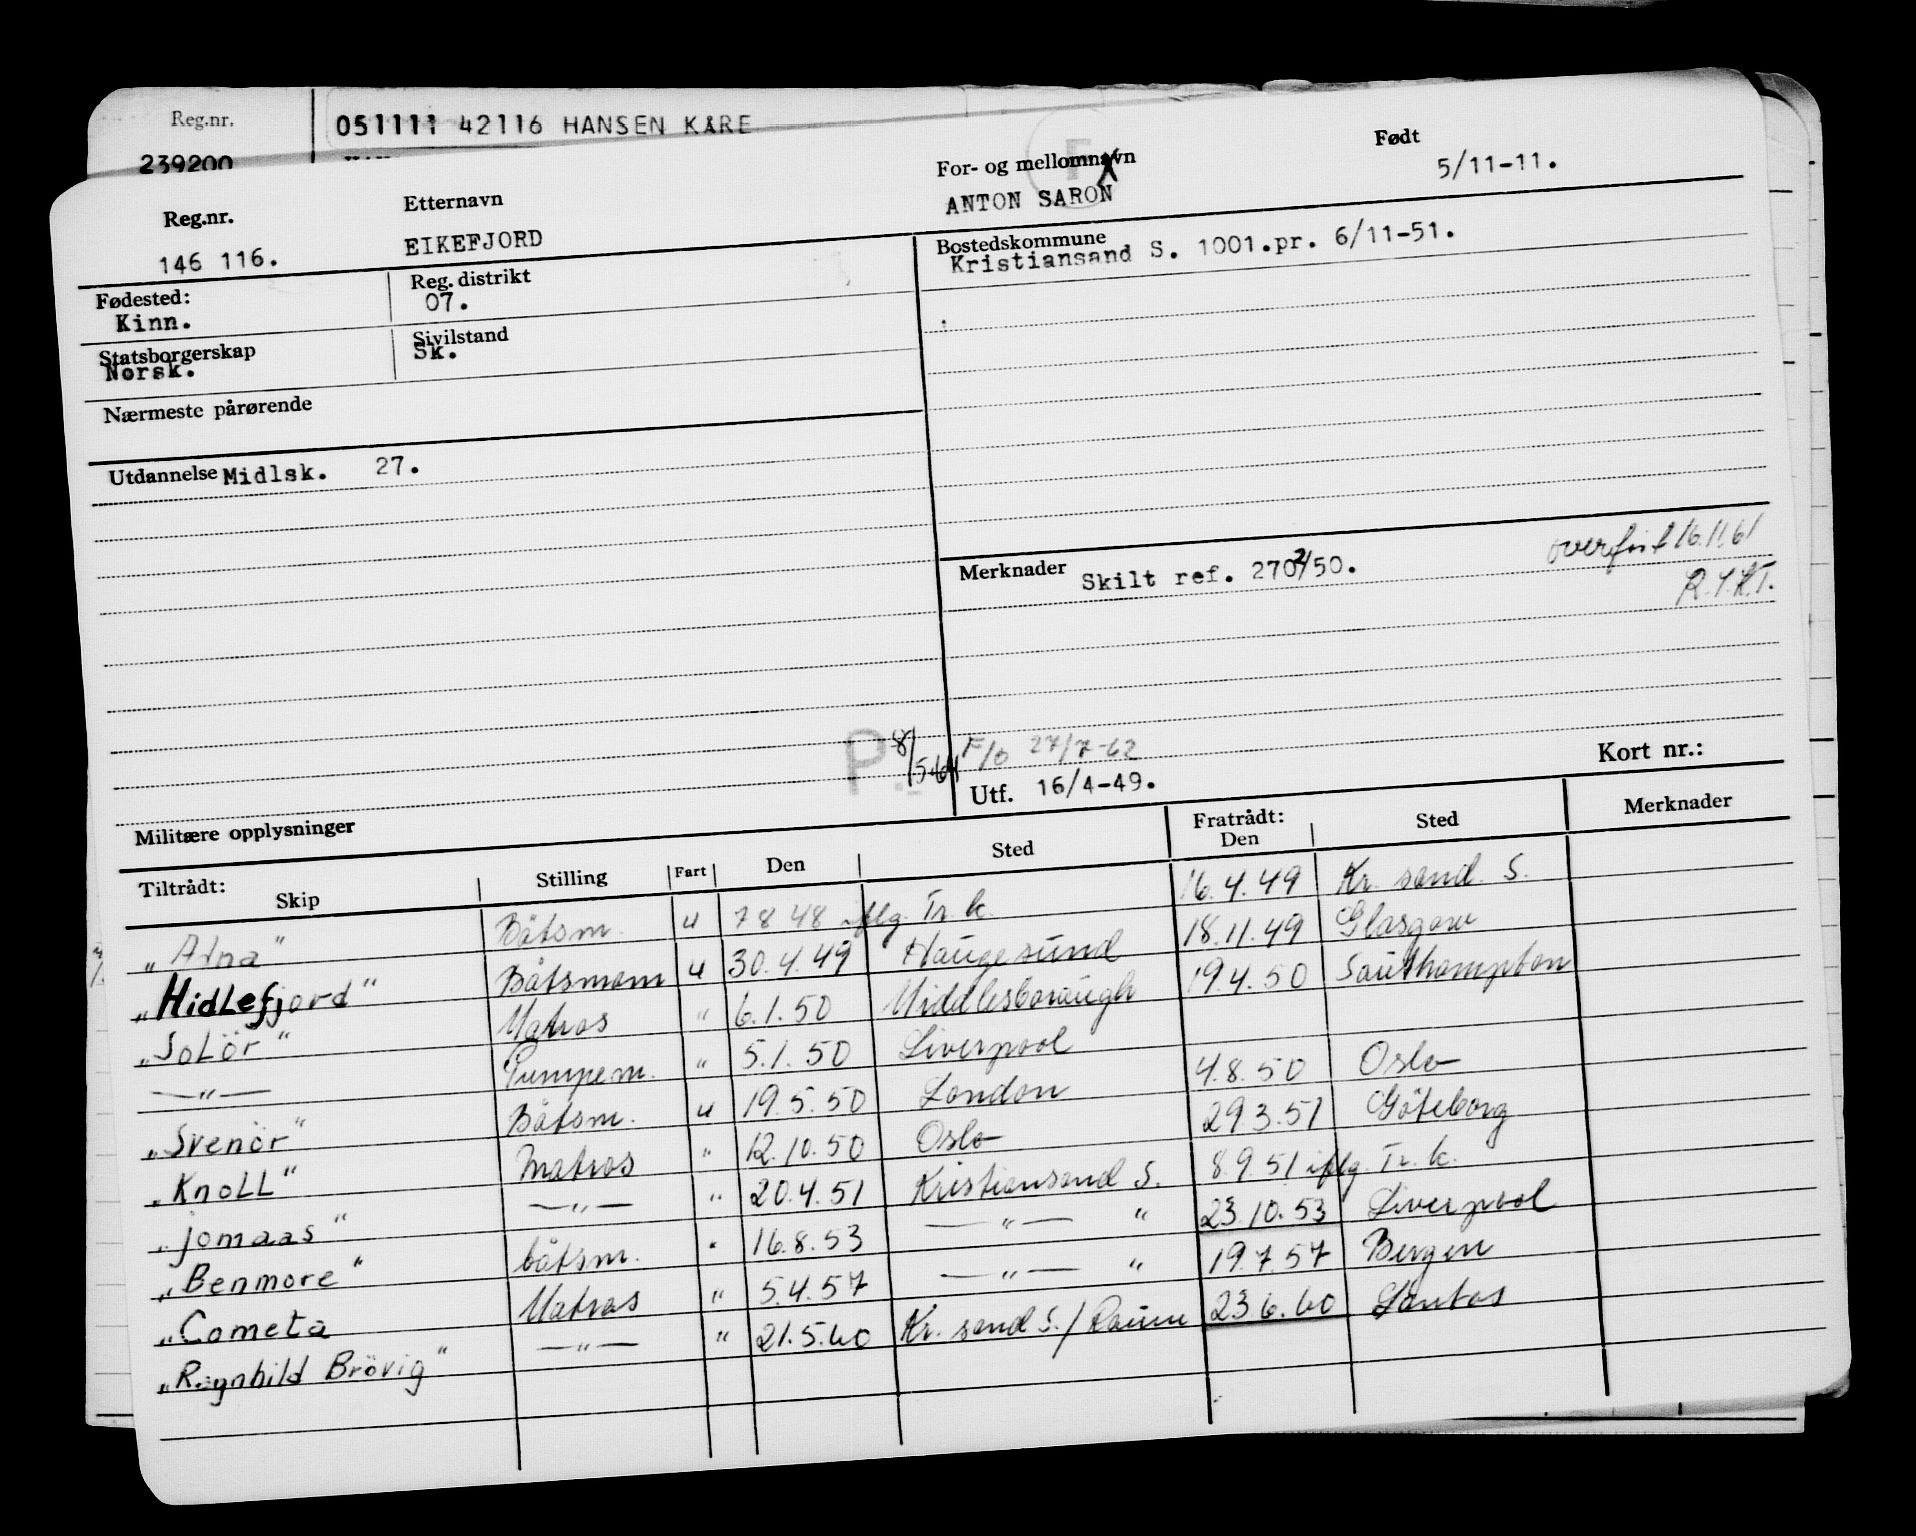 Reg.nr.
051111 42116 HANSEN KÅRE
239200
Reg.nr. Etternavn For- og mellomnavn Født
146 116. EIKEFJORD ANTON SARON 5/11-11.
Fødested: Reg. distrikt Bostedskommune
Kinn. 07. Kristiansand S. 1001.pr. 6/11-51.
Statsborgerskap Sivilstand
Norsk. Sk.
Nærmeste pårørende
Utdannelse Midlsk. 27.
Merknader Skilt ref. 2702/50. overført 16.11.61
R.T.K.T.
P 8/5-61 F/o 27/7-62
Utf. 16/4-49. Kort nr.:
Militære opplysninger
Tiltrådt: Skip Stilling Fart Den Sted Fratrådt: Den Sted Merknader
"Atna" Båtsm. u 7 8 48 iflg. Tr. k. 16.4.49 Kr. sand. S.
"Hidlefjord" Båtsmann u 30.4.49 Haugesund 18.11.49 Glasgow
"Solör" Matros " 6.1.50 Middlesborough 19.4.50 Southampton
—"— Pumpem. " 5.1.50 Liverpool
"Svenör" Båtsm. u 19.5.50 London 4.8.50 Oslo
"Knoll" Matros " 12.10.50 Oslo 29.3.51 Göteborg
"Jomaas" —"— " 20.4.51 Kristiansand S. 8.9.51 iflg. Tr. k.
"Benmore" båtsm. " 16.8.53 —"— " 23.10.53 Liverpool
"Cometa Matros " 5.4.57 —"— " 19.7.57 Bergen
"Ragnhild Brövig" —"— " 21.5.60 Kr. sand S./ 23.6.60 Santos